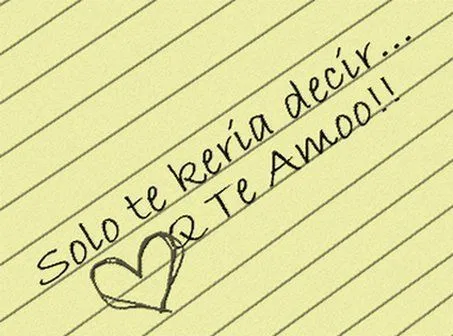 Solo te kería decir...
Q Te Amoo!!